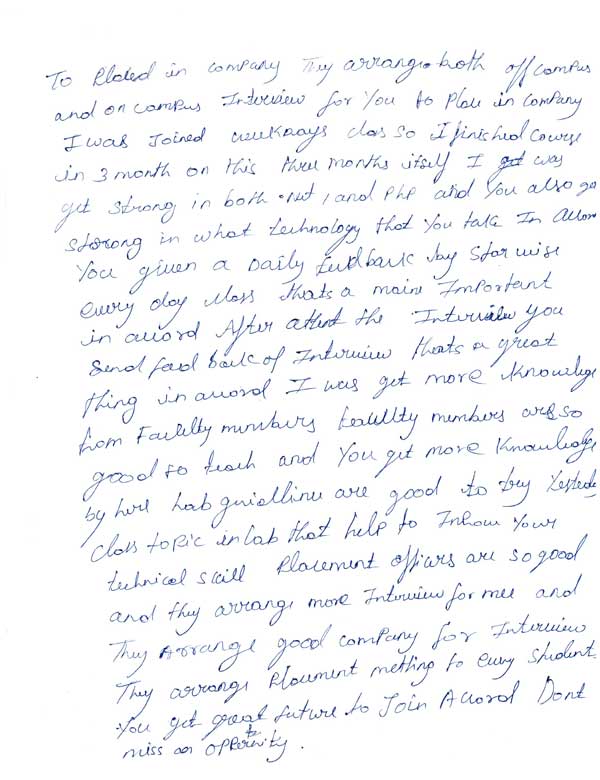 To Placed in company They arrange both off campus
and on campus Interview for You to Place in company
I was Joined weekdays class so I finished course
in 3 month on this three months itself I got was
get strong in both .Net, and PHP and You also get
strong in what technology that You take In Accord
You given a Daily feedback by Star wise
every day class thats a main Important
in accord After attent the Interview you
Send feed back of Interview thats a great
thing in accord I was get more knowledge
from Faculty members faculity members are so
good to teach and You get more knowledge
by here Lab guidline are good to try Yesterday
class topic in Lab that help to Your
technical skill Placement officers are so good
and they arrange more Interview for mee and
They Arrange good company for Interview
They arrange Placement metting to every student
You get great future to Join Accord Dont
miss an oppertunity.